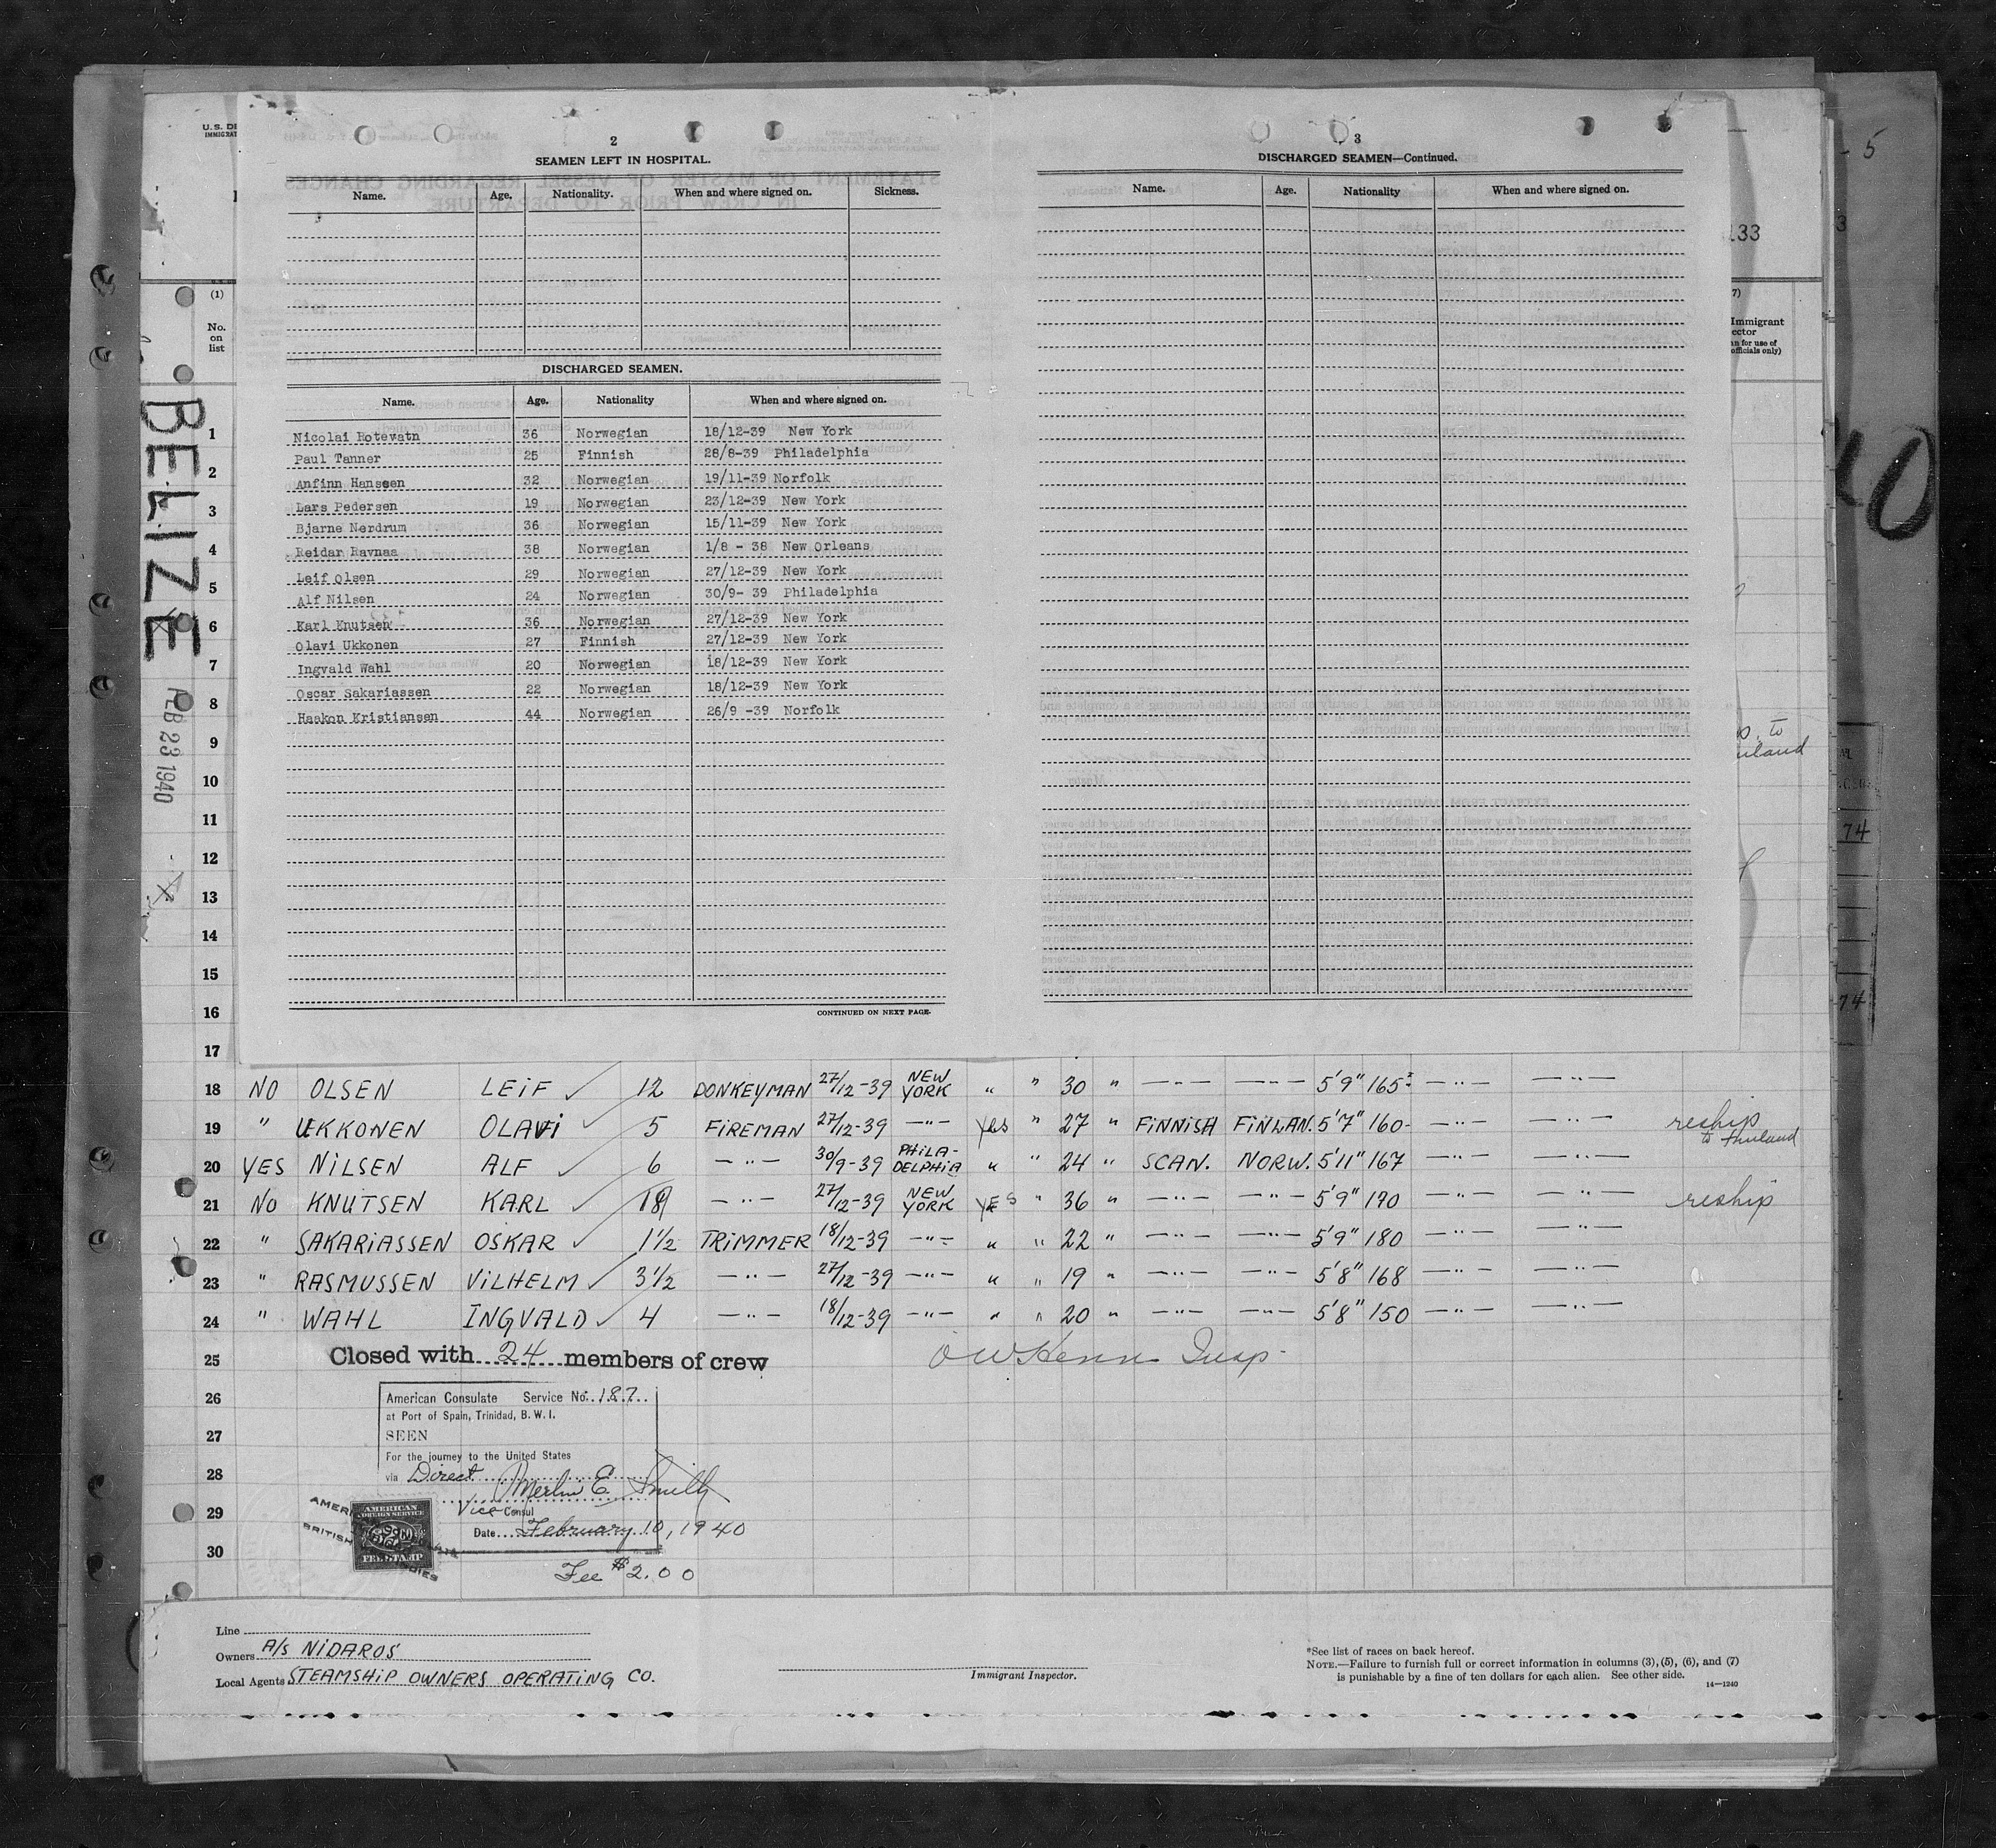 U.S. DE
IMMIGRAT
2
SEAMEN LEFT IN HOSPITAL.
Name. Age. Nationality. When and where signed on. Sickness.
DISCHARGED SEAMEN.
Name. Age. Nationality When and where signed on.
Nicolai Rotevatn 36 Norwegian 18/12-39 New York
Paul Tanner 25 Finnish 28/8-39 Philadelphia
Anfinn Hanssen 32 Norwegian 19/11-39 Norfolk
Lars Pedersen 19 Norwegian 23/12-39 New York
Bjarne Nerdrum 36 Norwegian 15/11-39 New York
Reidar Ravnaa 38 Norwegian 1/8 - 38 New Orleans
Leif Olsen 29 Norwegian 27/12-39 New York
Alf Nilsen 24 Norwegian 30/9- 39 Philadelphia
Karl Knutsen 36 Norwegian 27/12-39 New York
Olavi Ukkonen 27 Finnish 27/12-39 New York
Ingvald Wahl 20 Norwegian 18/12-39 New York
Oscar Sakariassen 22 Norwegian 18/12-39 New York
Haakon Kristiansen 44 Norwegian 26/9 -39 Norfolk
CONTINUED ON NEXT PAGE.
3
DISCHARGED SEAMEN—Continued.
Name. Age. Nationality When and where signed on.
133
5
BELIZE
FEB 23 1940
(1)
No.
on
list
7)
Immigrant
ector
an for use of
officials only)
40
1
2
3
4
5
6
7
8
9
10
11
12
13
14
15
16
17
74
74
18 NO OLSEN LEIF ✓ 12 DONKEYMAN 27/12-39 NEW YORK " " 30 " —"— —"— 5'9" 165 —"— —"—
19 " UKKONEN OLAVI ✓ 5 FIREMAN 27/12-39 —"— Yes " 27 " FINNISH FINLAN. 5'7" 160 —"— —"— reship to
20 YES NILSEN ALF ✓ 6 —"— 30/9-39 PHILA-DELPHIA " " 24 " SCAN. NORW. 5'11" 167 —"— —"—
21 NO KNUTSEN KARL ✓ 18 —"— 27/12-39 NEW YORK YES " 36 " —"— —"— 5'9" 170 —"— —"— reship
22 " SAKARIASSEN OSKAR ✓ 1½ TRIMMER 18/12-39 —"— " " 22 " —"— —"— 5'9" 180 —"— —"—
23 " RASMUSSEN VILHELM ✓ 3½ —"— 27/12-39 —"— " " 19 " —"— —"— 5'8" 168 —"— —"—
24 " WAHL INGVALD ✓ 4 —"— 18/12-39 —"— " " 20 " —"— —"— 5'8" 150 —"— —"—
25 Closed with 24 members of crew Insp.
26 American Consulate Service No. 187
at Port of Spain, Trinidad, B. W. I.
27 SEEN
For the journey to the United States
28 via Direct Merlin E. Smith
29 Vice Consul
Date February 10, 1940
30
Fee $2.00
AMERICAN
FOREIGN SERVICE
FEE STAMP
Line
Owners A/S NIDAROS
Local Agents STEAMSHIP OWNERS OPERATING CO.
Immigrant Inspector.
*See list of races on back hereof.
NOTE.—Failure to furnish full or correct information in columns (3), (5), (6), and (7)
is punishable by a fine of ten dollars for each alien. See other side.
14—1240